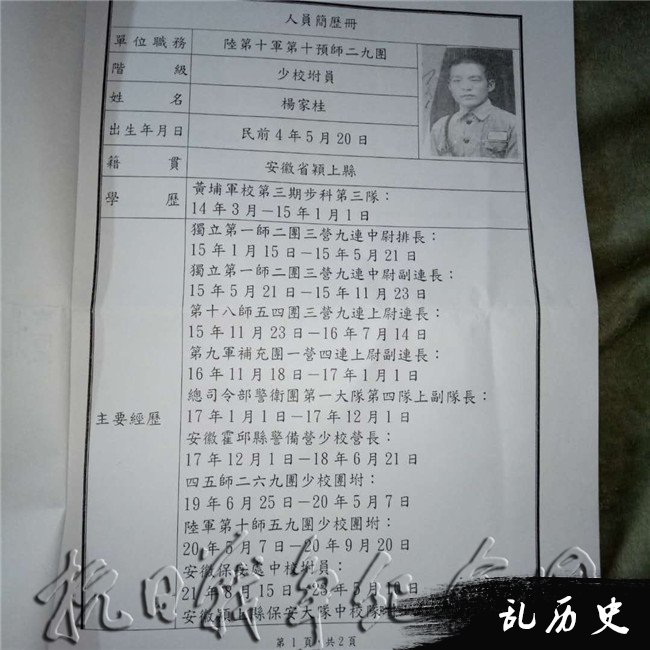 人員簡歷冊
單位職務 陸第十軍第十預師二九團
階級 少校坿員
姓名 楊家桂
出生年月日 民前4年5月20日
籍貫 安徽省穎上縣
學歷 黃埔軍校第三期步科第三隊：
14年3月－15年1月1日
主要經歷
獨立第一師二團三營九連中尉排長：
15年1月15日－15年5月21日
獨立第一師二團三營九連中尉副連長：
15年5月21日－15年11月23日
第十八師五四團三營九連上尉連長：
15年11月23日－16年7月14日
第九軍補充團一營四連上尉副連長：
16年11月18日－17年1月1日
總司令部警衛團第一大隊第四隊上副隊長：
17年1月1日－17年12月1日
安徽霍邱縣警備營少校營長：
17年12月1日－18年6月21日
四五師二六九團少校團坿：
19年6月25日－20年5月7日
陸軍第十師五九團少校團坿：
20年5月7日－20年9月20日
安徽保安處中校坿員：
21年8月15日－23年5月10日
安徽穎上縣保安大隊中校隊
第1頁，共2頁
抗日战争纪念网
乱历史